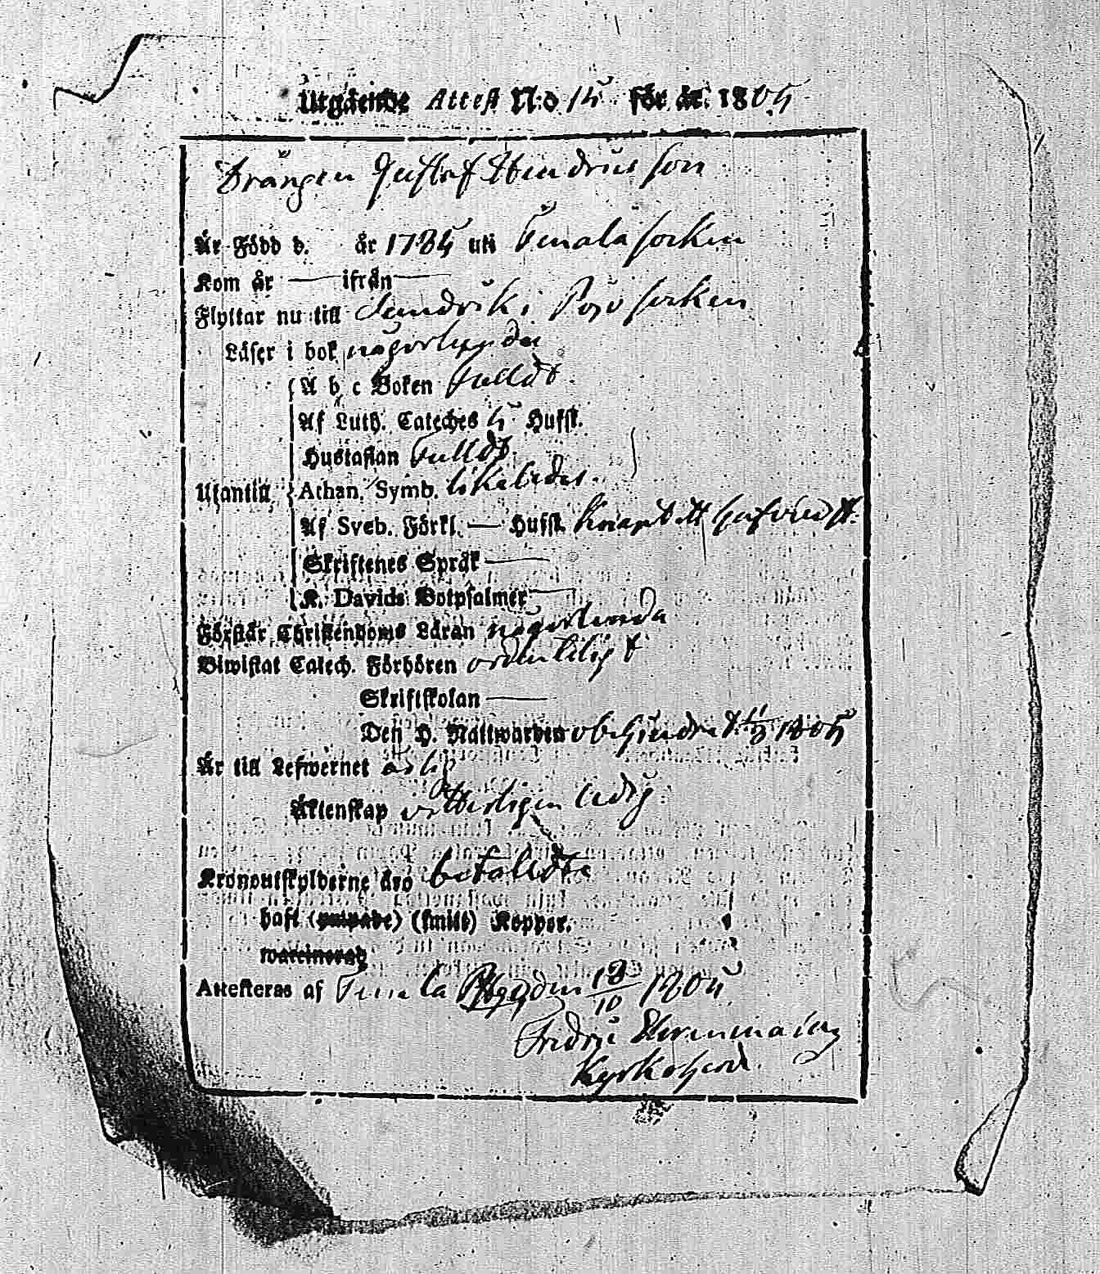 Utgående Attest N:o 15 för år. 1805
Drängen Gustaf Hendricsson
Är Född d. år 1785 uti Tenala socken
Kom år — ifrån —
Flyttar nu till Sandvik i Pojo socken
Läser i bok någorlunda
A b c Boken Fulldt.
Af Luth. Cateches 5 Hufst.
Hustaflan Fulldt.
Utantill Athan. Symb. likaledes.
Af Sveb. Förkl. — Hufst. Knapt ett hufvud st.
Skriftenes Språk —
K. Davids Botpsalmer —
Förstår Christendoms Läran någorlunda
Biwistat Catech. Förhören ordentligt
Skriftskolan —
Den H. Nattwarden obehindrad 1805
Är till Lefwernet
Äktenskap vitterligen ledig
Kronoutskylderne äro betalldte
haft (ympade) (smitt) Koppor.
waccinerad
Attesteras af Tenala Prgd den 18/10 1805
Kyrkoherde